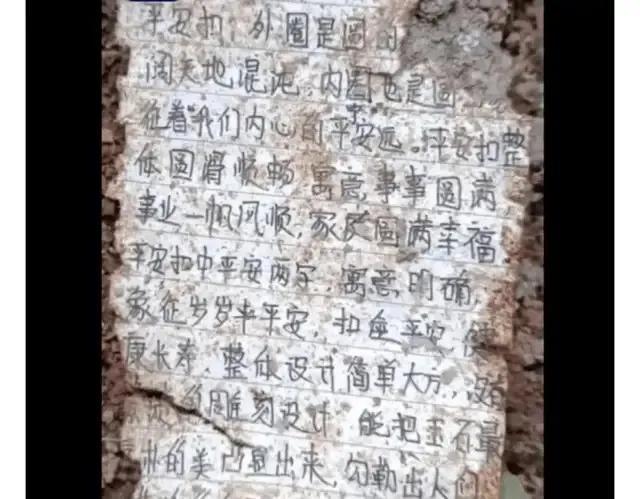 平安扣，外圈是圆的
阔天地混沌，内圈也是圆
征着我们内心的平安远。平安扣整
体圆滑顺畅，寓意事事圆满，
事业一帆风顺，家庭圆满幸福。
平安扣中平安两字，寓意明确，
象征岁岁平平安，扣座平安，健
康长寿，整体设计简单大方，没有
雕刻设计，能把玉石最
的美凸显出来，勾勒出人们